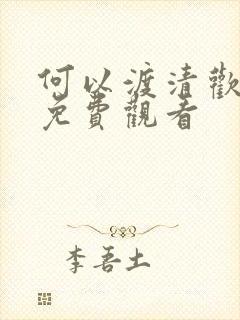 何以渡清歡
免費觀看
李吾土